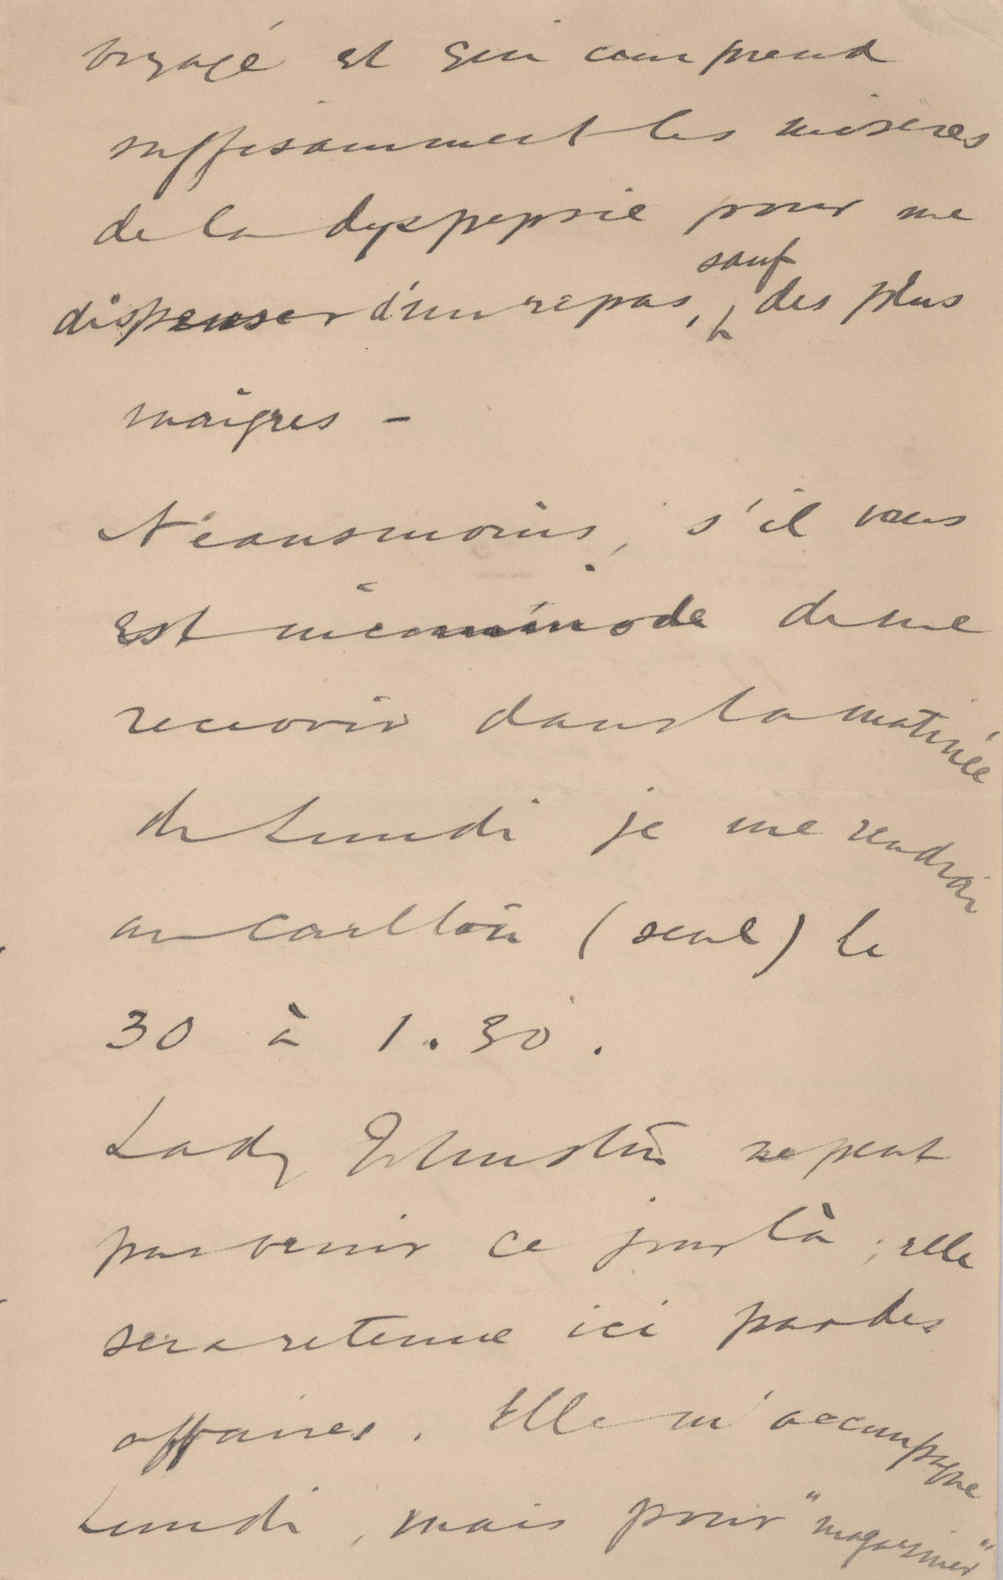 voyagé et qui comprend
suffisamment les misères
de la dyspepsie pour me
dispenser d'un repas, sauf des plus
maigres -
Néansmoins, s'il vous
est incommode de me
recevoir dans la matinée
de Lundi je me rendrai
au Carlton (seul) le
30 à 1.30.
Lady Johnston ne peut
pas venir ce jour là; elle
sera retenue ici par des
affaires. Elle m'accompagne
Lundi, mais pour "magasiner"